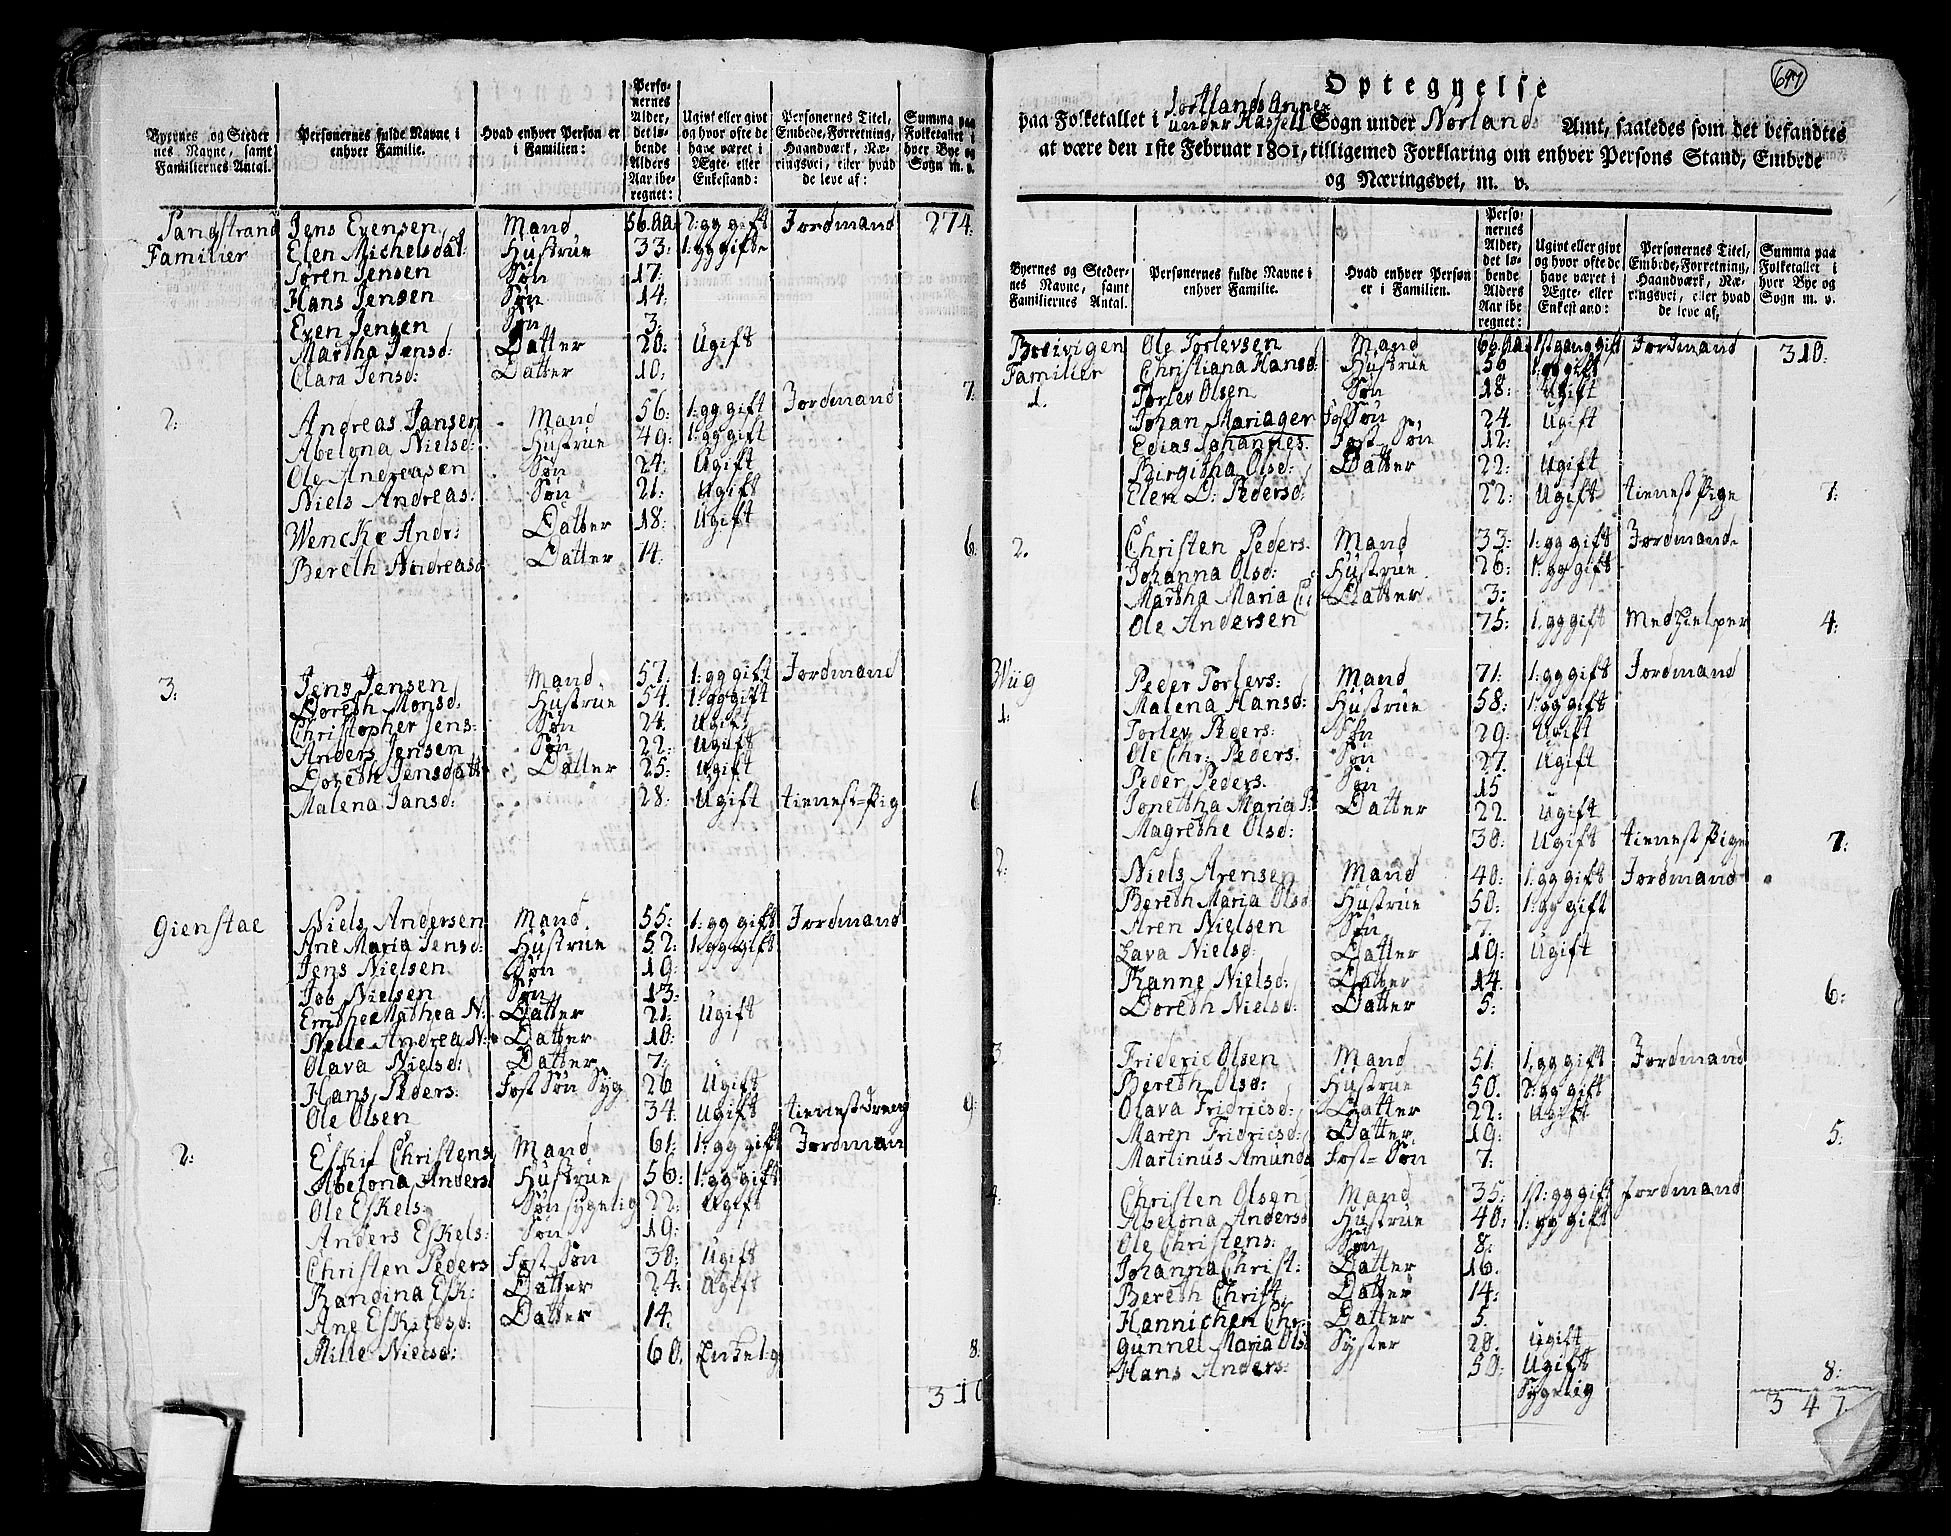 Byernes og Steder
nes Navne, samt
Familiernes Antal.
Personernes fulde Navne i
enhver Familie.
Hvad enhver Person er
i Familien:
Perso-
nernes
Alder,
det lø-
bende
Alders
Aar ibe-
regnet:
Ugivt eller givt
og hvor ofte de
have været i
Ægte- eller
Enkestand:
Personernes Titel,
Embede, Forretning,
Haandværk, Næ-
ringsvei, eller hvad
de leve af:
Summa paa
Folketallet i
hver Bye og
Sogn m. v.
Sandstrand Jens Evensen Mand 56 Aar 2: gg gift Jordmand 274.
Familier Elen Michelsdat: Hustrue 33: 1: gg gift
Søren Jensen Søn 17:
Hans Jensen Søn 14:
Even Jensen Søn 3:
Martha Jensd: Datter 20: Ugift
Clara Jensd: Datter 10: 7:
2: Andreas Jansen Mand 56: 1: gg gift Jordmand
Abelona Nielsd: Hustrue 49: 1: gg gift
Ole Andreasen Søn 24: Ugift
Niels Andreas: Søn 21: Ugift
Wencke Andr: Datter 18: Ugift
Bereth Andreasd Datter 14: 6:
3: Jens Jensen Mand 57: 1: gg gift Jordmand
Doreth Monsd: Hustrue 54: 1: gg gift
Christopher Jens: Søn 24: Ugift
Anders Jensen Søn 22: Ugift
Doreth Jensdatt Datter 25: Ugift
Malena Jansd: 28: Ugift tienest=Pig 6
Gienstae Niels Andersen Mand 55: 1: gg gift Jordmand
Ane Maria Jensd: Hustrue 52: 1: gg gift
Jens Nielsen Søn 19:
Job Nielsen Søn 13:
Emthe Mathea N: Datter 21: Ugift
Nelle Andrea N: Datter 10:
Olava Nielsd: Datter 7:
Hans Peders: Fost Søn Syg 26 Ugift
Ole Olsen 34: Ugift tienestdreng 9:
2: Eskil Christens Mand 61: 1: gg gift Jordman
Abelona Anders Hustrue 56: 1: gg gift
Ole Eskels: Søn sygelig 22: Ugift
Anders Eskels: Søn 19:
Christen Peders Fost Søn 30: Ugift
Randina Esk: Datter 24: Ugift
Ane Eskildsd: Datter 14:
Mille Nielsd: 60. Enkelig 8:
310
697
Optegnelse
paa Folketallet i Jortlands Annex under Hassell Sogn under Norland Amt, saaledes som det befandtes
at være den 1ste Februar 1801, tilligemed Forklaring om enhver Persons Stand, Embede
og Næringsvei, m. v.
Byernes og Steder-
nes Navne, samt
Familiernes Antal.
Personernes fulde Navne i
enhver Familie.
Hvad enhver Person
er i Familien.
Perso-
nernes
Alder,
det lø-
bende
Alders
Aar ibe
regnet:
Ugivt eller givt
og hvor ofte de
have været i
Ægte- eller
Enkestand:
Personernes Titel,
Embede, Forretning,
Haandværk, Næ-
ringsvei, eller hvad
de leve af,
Summa paa
Folketallet i
hver Bye og
Sogn m. v.
Brdivigen Ole Torlevsen Mand 66 Aar 1st gang gift Jordmand 310:
Familier Christiana Hansd: Hustrue 56 1: gg gift
1. Torlev Olsen Søn 18: Ugift
Johan Mariager FosSøn 24. Ugift
Edias Johannes. Fost=Søn 12:
Birgitha Olsd: Datter 22: Ugift
Elen D: Pedersd: 22: Ugift tienest Pige 7:
2. Christen Peders. Mand 33: 1: gg gift Jordmand.
Johanna Olsd: Hustrue 26: 1: gg gift
Martha Maria Datter 3:
Ole Andersen 75: 1: gg gift Medhielper 4:
Wiig Peder Torlevs: Mand 71: 1: gg gift Jordmand
1: Malena Hansd: Hustrue 58: 1: gg gift
Torlev Peders: Søn 29: Ugift
Ole Chr: Peders. Søn 27. Ugift
Peder Peders. Søn 15
Jonettha Maria P: Datter 22. Ugift
Magrethe Olsd: 30: Ugift tienest Pige 7:
2: Niels Arensen Mand 40: 1: gg gift Jordmand
Bereth Maria Olsd Hustrue 50: 1: gg gift
Aren Nielsen Søn 7:
Lava Nielsd: Datter 19: Ugift
Ranne Nielsd: Datter 14:
Doreth Nielsd: Datter 5: 6:
3. Frideric Olsen Mand 51: 1. gg gift Jordmand
Bereth Olsd: Hustrue 50. 2: gg gift
Olava Fridricsd: Datter 22: Ugift
Maren Fridricsd: Datter 19: 5:
Martinus Amunds Fost=Søn 7:
4. Christen Olsen Mand 35: 1st: gg gift Jordmand
Abelona Andersd Hustrue 40: 1: gg gift
Ole Christens: Søn 8:
Johanna Christ: Datter 16.
Bereth Christ. Datter 14:
Hannichen Chr: Datter 5.
Gunnel Maria Olsd Syster 20. Ugift
Hans Anders: 50: Ugift 8:
Sygelig
347